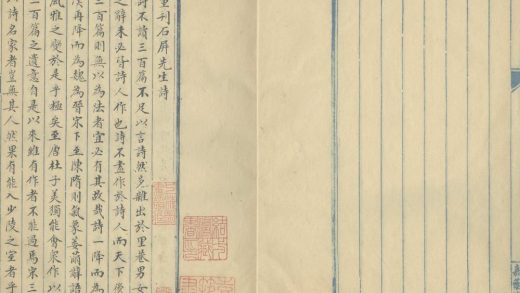 重刊石屏先生詩
詩不讀三百篇不足以言詩然多雜出於里巷男女
之辭未必皆詩人作也詩不盡作於詩人而天下後
三百篇則無以為法者宜必有其故哉詩一降而為
再降而為魏為晉宋下至陳隋則氣象萎薾辭語
風雅之變於是乎極矣至唐杜子美獨能會衆作以
三百篇之遺意自是以來雖有作者不能過焉宋三
以詩名家者豈無其人然果有能入少陵之室者乎